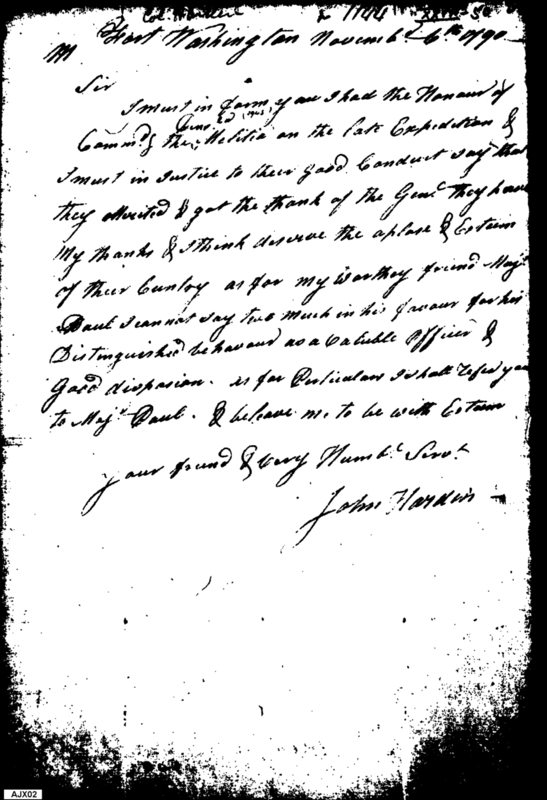 Col Hardin 1144
Fort Washington Novembr 6th 1790
Sir
I must in form you I had the Honour of
Commdg the Melitia on the late Expedition &
I must in Justice to their good Conduct say that
they Merited & got the thank of the Genl they have
My thanks & I think deserve the aplase & Esteem
of their Cuntry as for my Worthey friend Majr
Paul I cannot say two much in his favour for his
Distinguished behavour as a Valuble Officer &
Good disposion. as for Perticulars I shall refer you
to Majr Paul. & beleave me to be with Esteem
your friend & Very Humbl Servt
John Hardin
AJX02